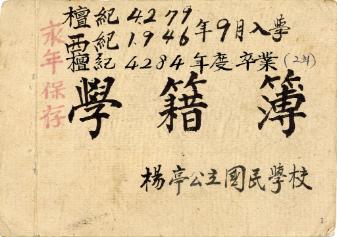 檀紀 4279
西紀 1946年9月入學
檀紀 4284年度卒業(24)
永年保存
學籍簿
楊亭公立國民學校